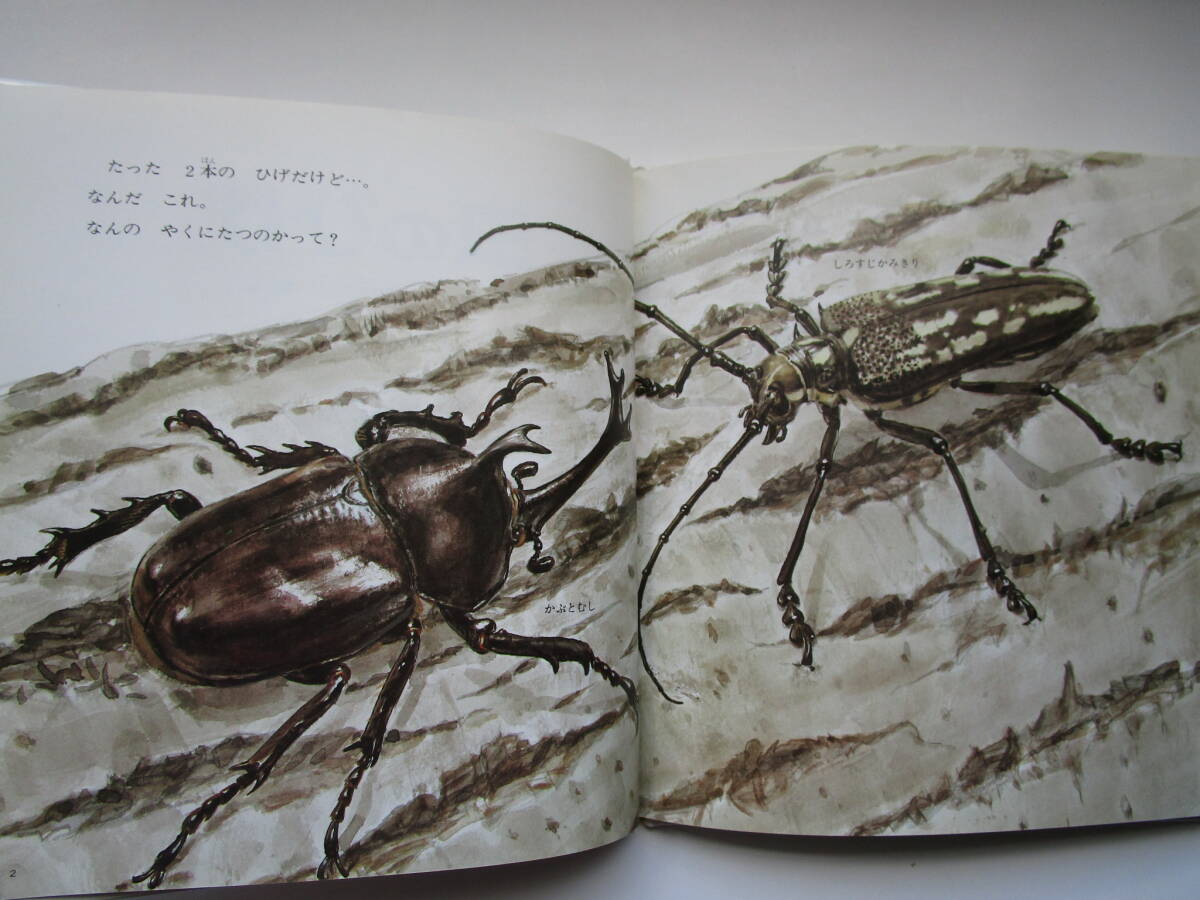 たった 2本の ひげだけど…。
なんだ これ。
なんの やくにたつのかって?
ほん
しろすじかみきり
かぶとむし
2